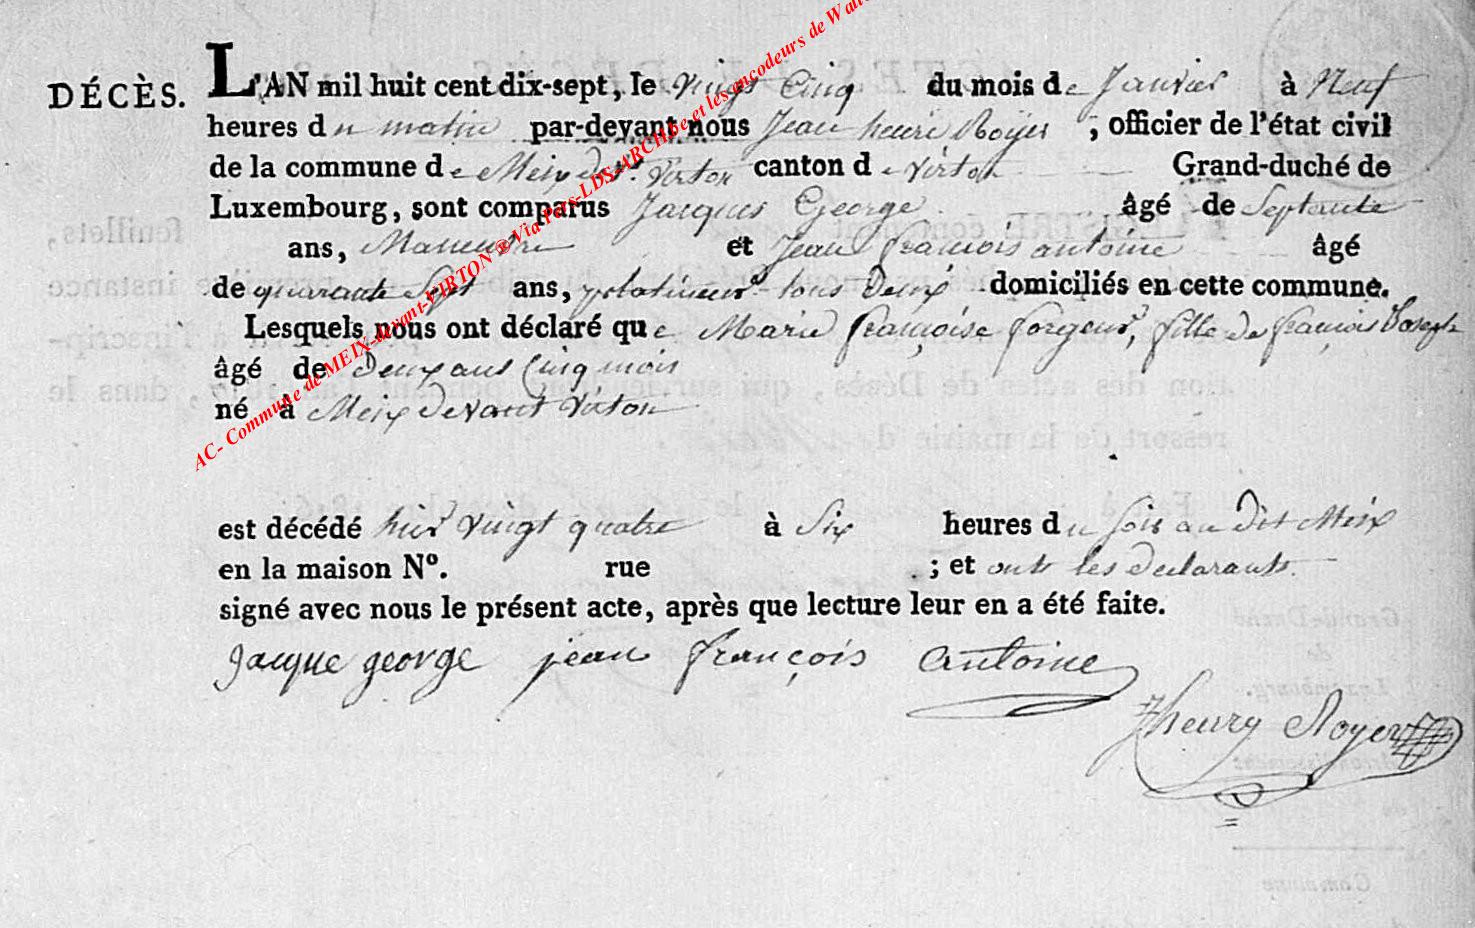 DÉCÈS. L'AN mil huit cent dix-sept, le vingt Cinq du mois de Janvier à Neuf
heures du matin par-devant nous Jean henri Royer, officier de l'état civil
de la commune de Meix dvt. Virton canton de virton Grand-duché de
Luxembourg, sont comparus Jacques George âgé de Septante
ans, Maneuvre et Jean françois antoine âgé
de quarante Sept ans, tous Deux domiciliés en cette commune.
Lesquels nous ont déclaré que Marie françoise forgeur, fille de françois Joseph
âgé de Deux ans Cinq mois
né à Meix devant Virton
est décédé hier vingt quatre à Six heures du soir au dit Meix
en la maison N°. rue ; et ont les declarants
signé avec nous le présent acte, après que lecture leur en a été faite.
jacque george jean françois antoine
Jhenry Royer
AC- Commune de MEIX-devant-VIRTON ® Via Pers-LDS-ARCHbe et les encodeurs de